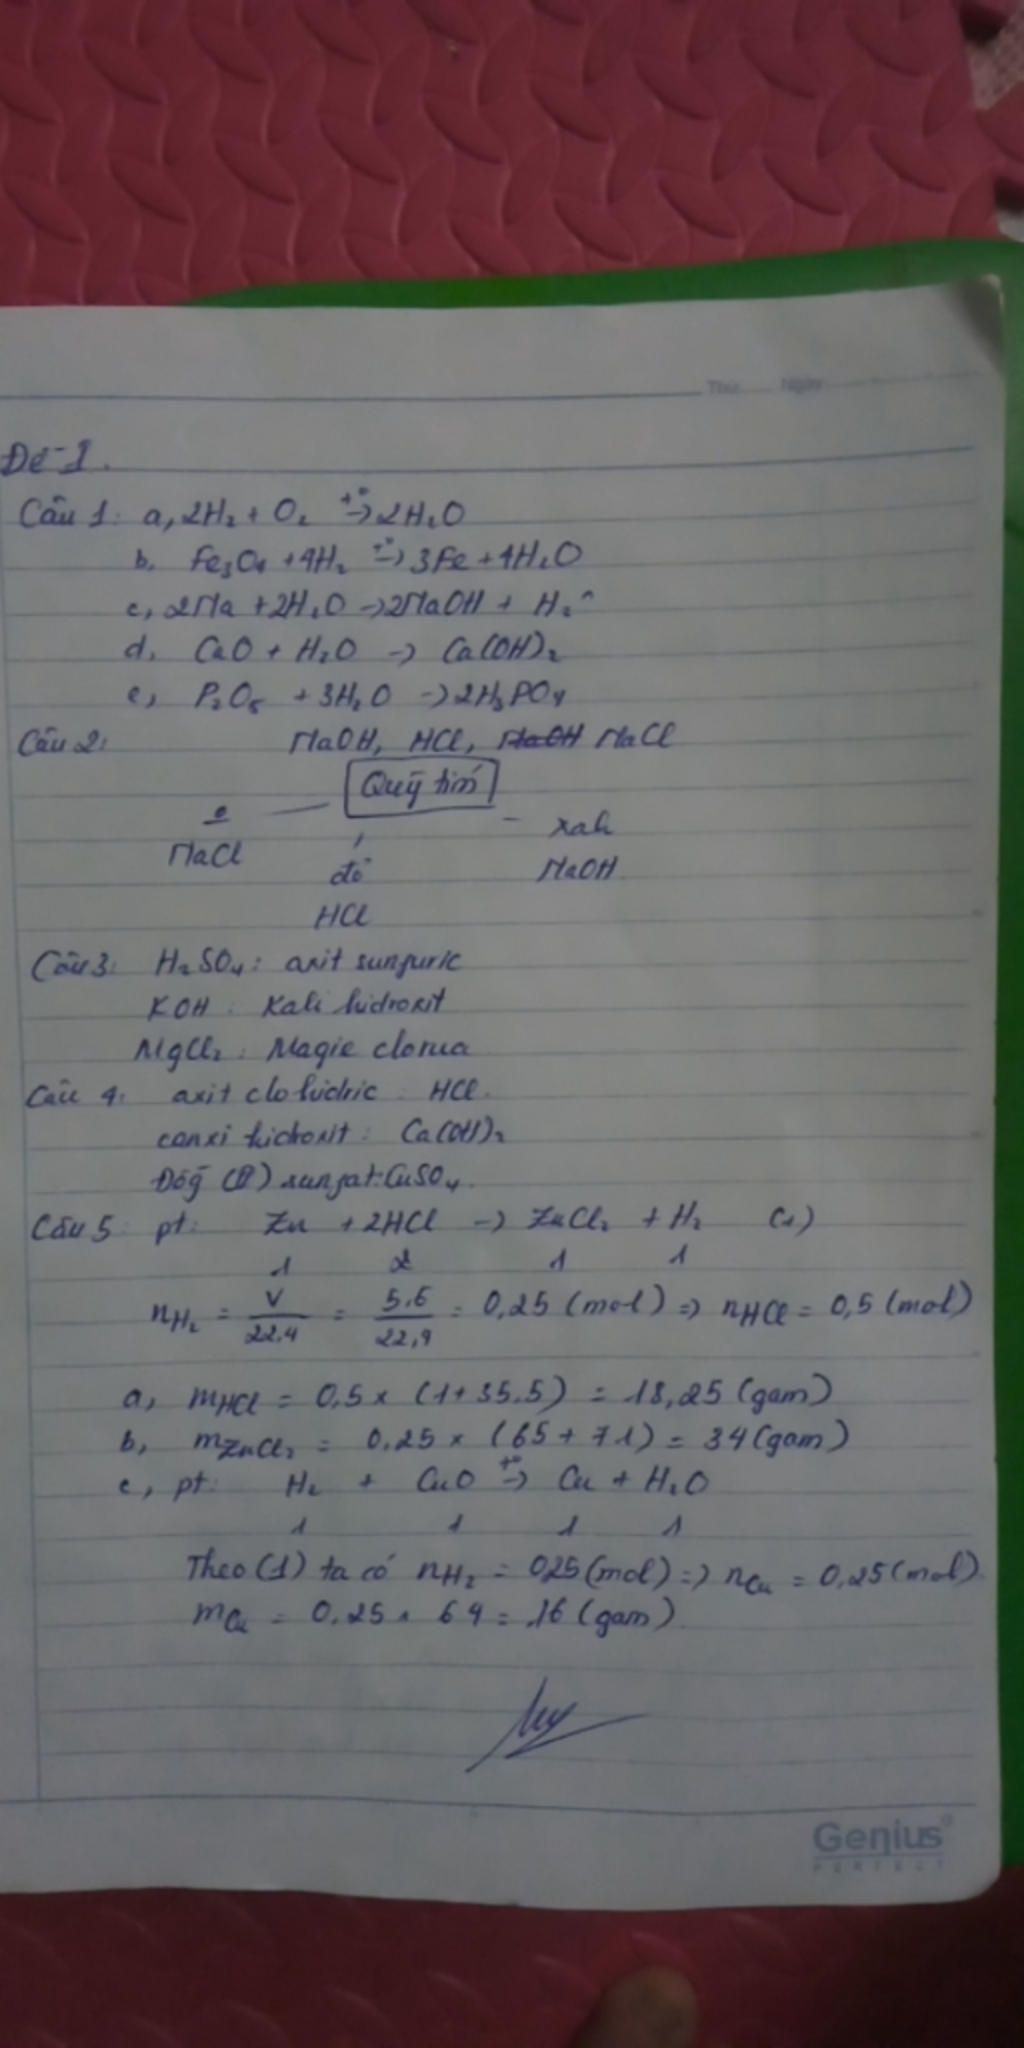 Thứ Ngày
Đề 1.
Câu 1: a, 2H₂ + O₂ t°→ 2H₂O
b, Fe₃O₄ + 4H₂ t°→ 3Fe + 4H₂O
c, 2Na + 2H₂O → 2NaOH + H₂ ^
d, CaO + H₂O → Ca(OH)₂
e, P₂O₅ + 3H₂O → 2H₃PO₄
Câu 2: NaOH, HCl, NaOH NaCl
Quỳ tím
0 xah
NaCl đỏ NaOH
HCl
Câu 3: H₂SO₄: axit sunfuric
KOH: Kali hidroxit
MgCl₂: Magie clorua
Câu 4: axit clohidric: HCl.
canxi hidroxit: Ca(OH)₂
Đồg (II) sunfat: CuSO₄.
Câu 5: pt: Zn + 2HCl → ZnCl₂ + H₂ (1)
1 2 1 1
nH₂ = V/22,4 = 5,6/22,4 = 0,25 (mol) => nHCl = 0,5 (mol)
a, mHCl = 0,5 x (1+35,5) = 18,25 (gam)
b, mZnCl₂ = 0,25 x (65 + 71) = 34 (gam)
c, pt: H₂ + CuO t°→ Cu + H₂O
1 1 1 1
Theo (1) ta có nH₂ = 0,25 (mol) => nCu = 0,25 (mol).
mCu = 0,25 x 64 = 16 (gam)
Genius
PERFECT